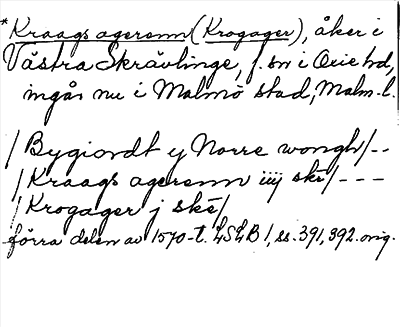 *Kraags agerenn (Krogager), åker i
Västra Skrävlinge, f. sn i Oxie hd,
ingår nu i Malmö stad, Malm. l.
/ Bygiordt y Norre wongh / - -
/ Kraags agerenn iiij skē / - - -
/ Krogager j skē /
förra delen av 1570-t. LSLB 1, ss. 391, 392. orig.